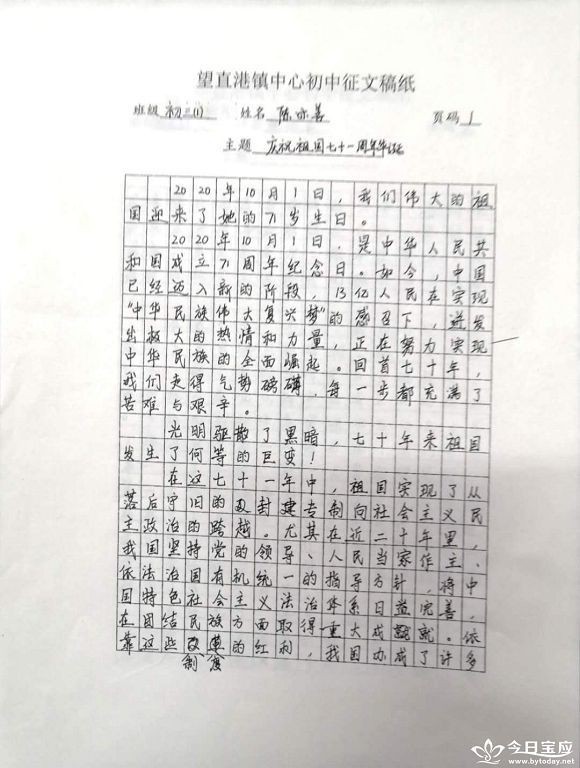 望直港镇中心初中征文稿纸
班级 初三(1) 姓名 陈亦善 页码 1
主题 庆祝祖国七十一周年华诞
2020年10月1日,我们伟大的祖
国迎来了她的71岁生日。
2020年10月1日,是中华人民共
和国成立71周年纪念日。如今,中国
已经迈入新的阶段,13亿人民在实现
“中华民族伟大复兴梦”的感召下,迸发
出极大的热情和力量,正在努力实现
中华民族的全面崛起。回首七十年,
我们走得气势磅礴,每一步都充满了
苦难与艰辛。
光明驱散了黑暗,七十年来祖国
发生了何等的巨变!
在这七十一年中,祖国实现了从
落后守旧的封建专制向社会主义民
主政治的跨越。尤其在近二十年里,
我国坚持党的领导、人民当家作主、
依法治国有机统一的指导方针,将中
国特色社会主义法治体系日益完善,
在团结民族方面取得重大成就。依
靠这些制度的红利,我国办成了许多
今日宝应
www.bytoday.net